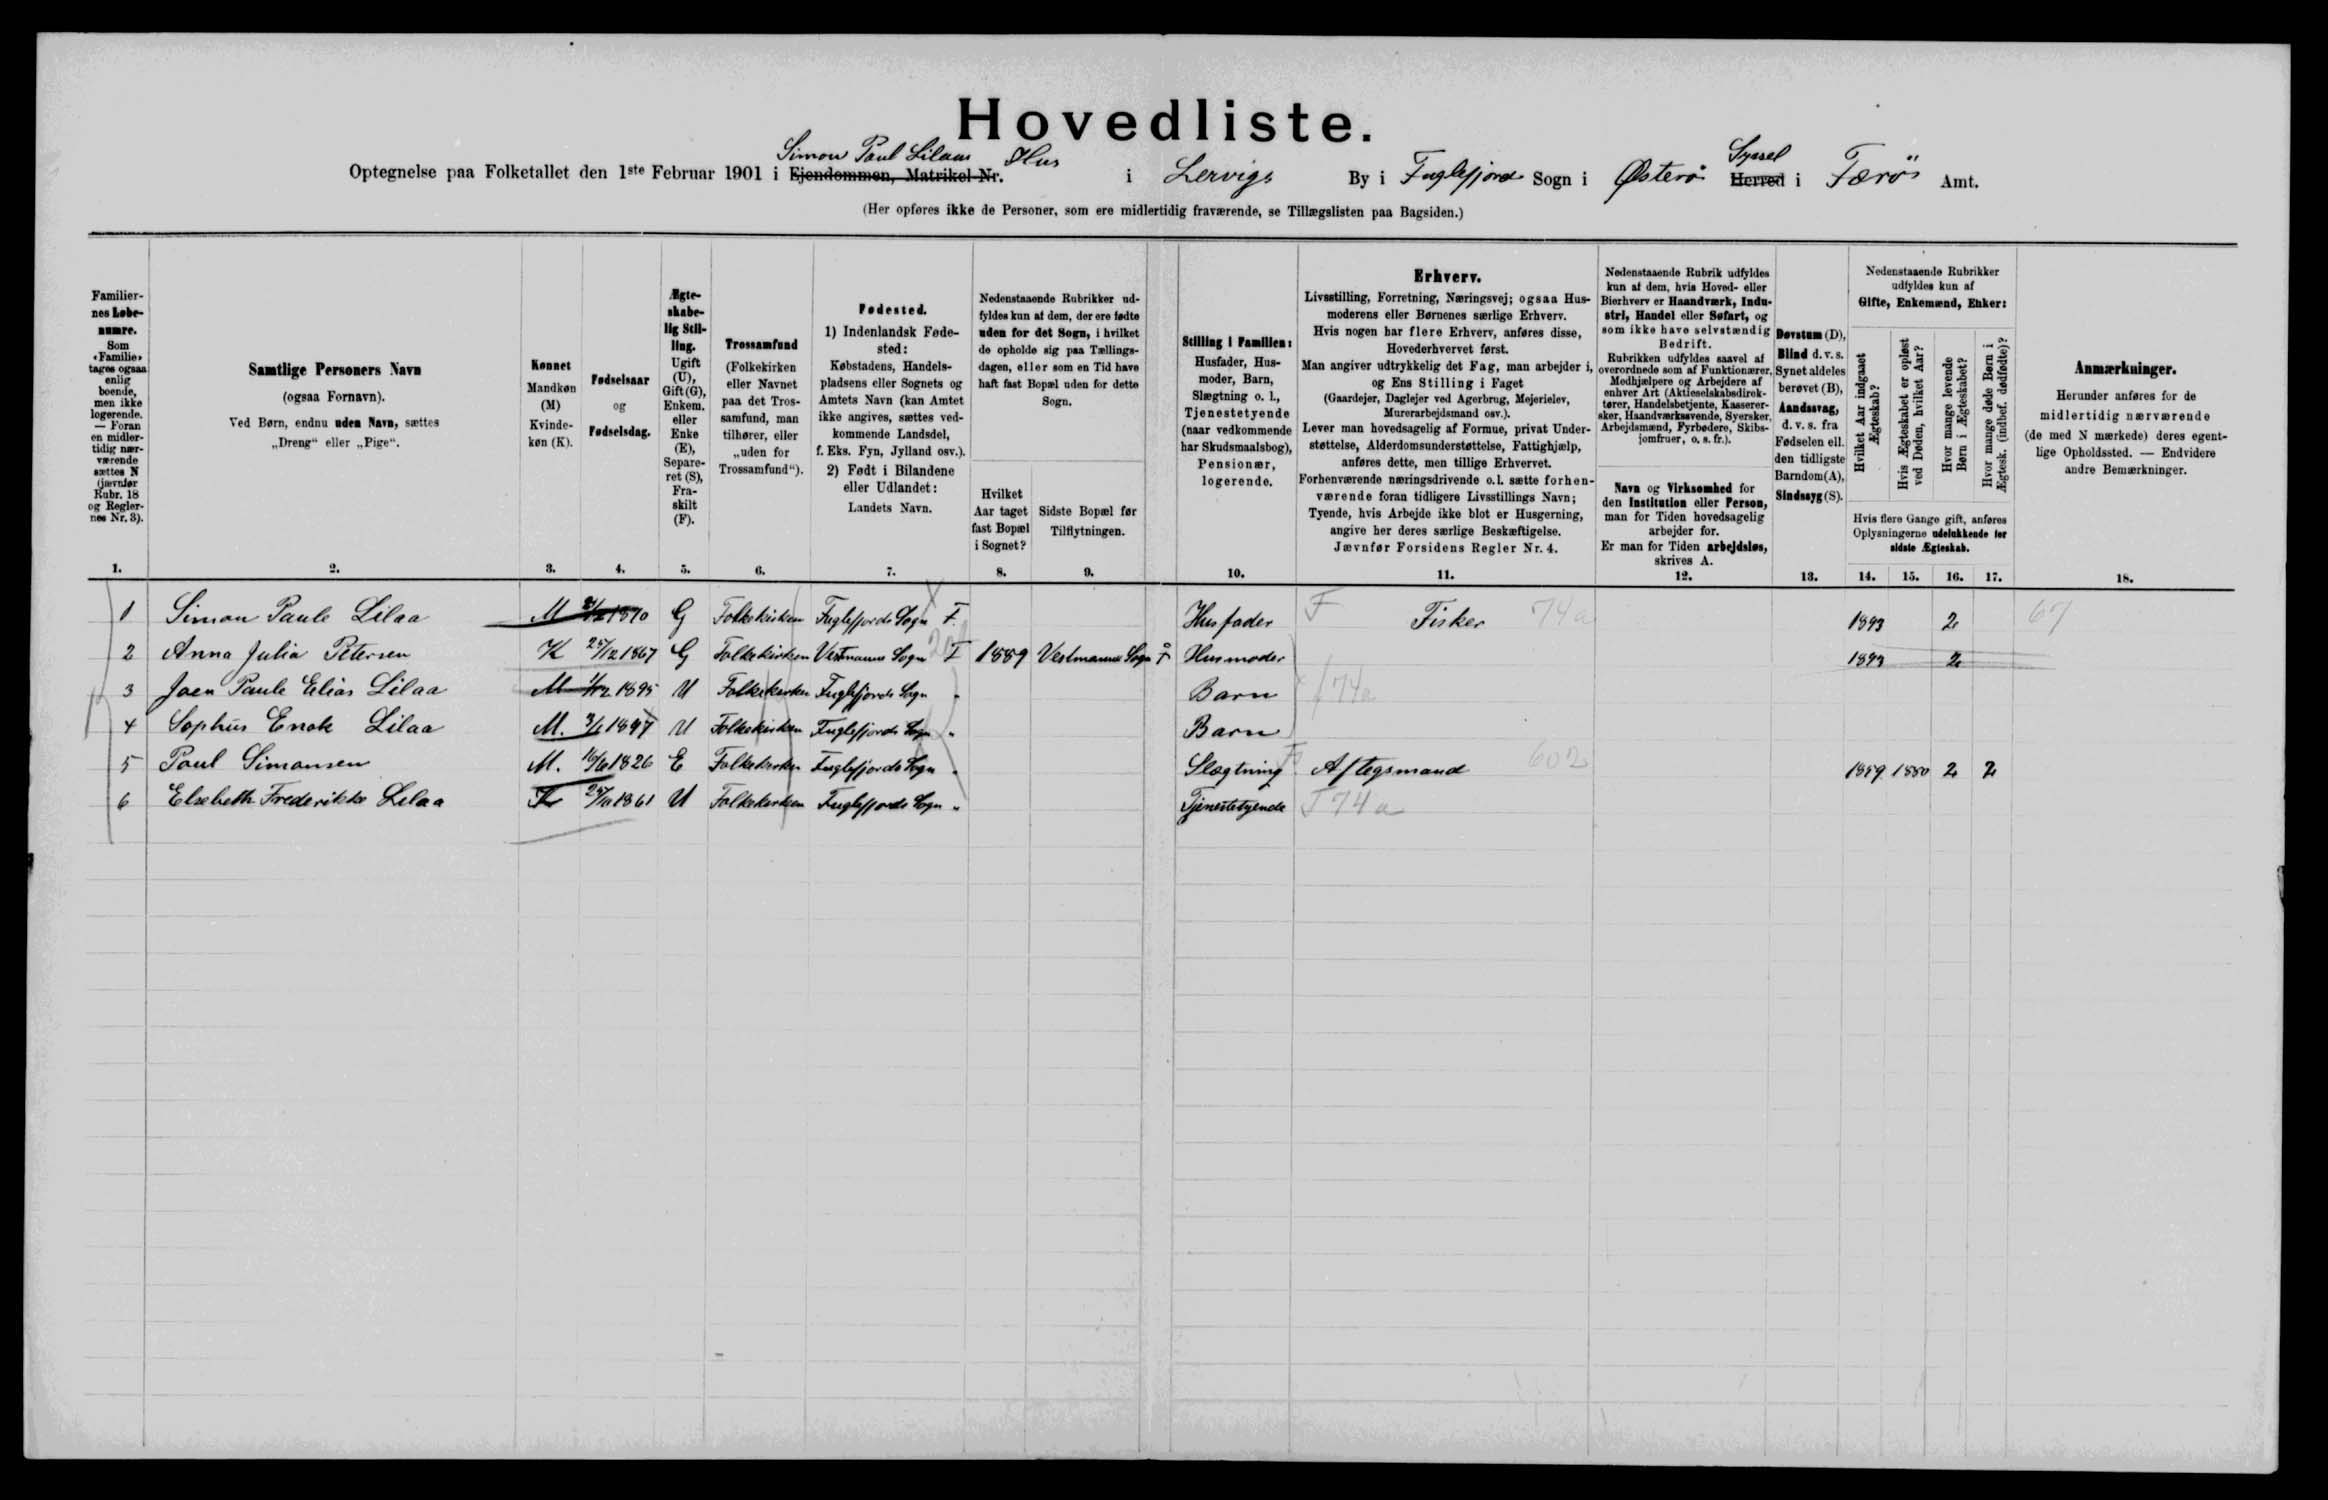 Hovedliste.
Simon Paul Lilaas Hus Syssel
Optegnelse paa Folketallet den 1ste Februar 1901 i Ejendommen, Matrikel-Nr. i Lervigs By i Fuglefjords Sogn i Østerø Herred i Færøs Amt.
(Her opføres ikke de Personer, som ere midlertidig fraværende, se Tillægslisten paa Bagsiden.)
Familiernes Løbenumre. Som «Familie» tages ogsaa enlig boende, men ikke logerende. — Foran en midlertidig nærværende sættes N (jævnfør Rubr. 18 og Reglernes Nr. 3).
Samtlige Personers Navn (ogsaa Fornavn). Ved Børn, endnu uden Navn, sættes „Dreng“ eller „Pige“.
Kønnet Mandkøn (M) Kvindekøn (K).
Fødselsaar og Fødselsdag.
Ægteskabelig Stilling. Ugift (U), Gift (G), Enkem. eller Enke (E), Separeret (S), Fraskilt (F).
Trossamfund (Folkekirken eller Navnet paa det Trossamfund, man tilhører, eller „uden for Trossamfund“).
Fødested. 1) Indenlandsk Fødested: Købstadens, Handelspladsens eller Sognets og Amtets Navn (kan Amtet ikke angives, sættes vedkommende Landsdel, f. Eks. Fyn, Jylland osv.). 2) Født i Bilandene eller Udlandet: Landets Navn.
Nedenstaaende Rubrikker udfyldes kun af dem, der ere fødte uden for det Sogn, i hvilket de opholde sig paa Tællingsdagen, eller som en Tid have haft fast Bopæl uden for dette Sogn.
Hvilket Aar taget fast Bopæl i Sognet?
Sidste Bopæl før Tilflytningen.
Stilling i Familien: Husfader, Husmoder, Barn, Slægtning o. l., Tjenestetyende (naar vedkommende har Skudsmaalsbog), Pensionær, logerende.
Erhverv.
Livsstilling, Forretning, Næringsvej; ogsaa Husmoderens eller Børnenes særlige Erhverv.
Hvis nogen har flere Erhverv, anføres disse, Hovederhvervet først.
Man angiver udtrykkelig det Fag, man arbejder i, og Ens Stilling i Faget
(Gaardejer, Daglejer ved Agerbrug, Mejerielev, Murerarbejdsmand osv.).
Lever man hovedsagelig af Formue, privat Understøttelse, Alderdomsunderstøttelse, Fattighjælp, anføres dette, men tillige Erhvervet.
Forhenværende næringsdrivende o. l. sætte forhenværende foran tidligere Livsstillings Navn;
Tyende, hvis Arbejde ikke blot er Husgerning, angive her deres særlige Beskæftigelse.
Jævnfør Forsidens Regler Nr. 4.
Nedenstaaende Rubrik udfyldes kun af dem, hvis Hoved- eller Bierhverv er Haandværk, Industri, Handel eller Søfart, og som ikke have selvstændig Bedrift.
Rubrikken udfyldes saavel af overordnede som af Funktionærer, Medhjælpere og Arbejdere af enhver Art (Aktieselskabsdirektører, Handelsbetjente, Kasserersker, Haandværkssvende, Syersker, Arbejdsmænd, Fyrbødere, Skibsjomfruer, o. s. fr.).
Navn og Virksomhed for den Institution eller Person, man for Tiden hovedsagelig arbejder for.
Er man for Tiden arbejdsløs, skrives A.
Døvstum (D), Blind d. v. s. Synet aldeles berøvet (B), Aandssvag, d. v. s. fra Fødselen ell. den tidligste Barndom (A), Sindssyg (S).
Nedenstaaende Rubrikker udfyldes kun af Gifte, Enkemænd, Enker:
Hvilket Aar indgaaet Ægteskab?
Hvis Ægteskabet er opløst ved Døden, hvilket Aar?
Hvor mange levende Børn i Ægteskabet?
Hvor mange døde Børn i Ægtesk. (indbef. dødfødte)?
Hvis flere Gange gift, anføres Oplysningerne udelukkende for sidste Ægteskab.
Anmærkninger.
Herunder anføres for de midlertidig nærværende (de med N mærkede) deres egentlige Opholdssted. — Endvidere andre Bemærkninger.
1. 2. 3. 4. 5. 6. 7. 8. 9. 10. 11. 12. 13. 14. 15. 16. 17. 18.
1 Simon Paule Lilaa M 1870 G Folkekirken Fuglefjords Sogn F. Husfader F Fisker 74a 1893 2 67
2 Anna Julia Petersen K 25/12 1867 G Folkekirken Vestmanna Sogn F 1889 Vestmanna Sogn F Husmoder 1893 2
3 Joen Paule Elias Lilaa M 1/12 1895 U Folkekirken Fuglefjords Sogn " Barn 74a
4 Sophus Enok Lilaa M. 3/6 1897 U Folkekirken Fuglefjords Sogn " Barn
5 Poul Simonsen M. 16/6 1826 E Folkekirken Fuglefjords Sogn " Slægtning F Aftegsmand 602 1859 1880 2 2
6 Elsebeth Frederikke Lilaa K 1861 U Folkekirken Fuglefjords Sogn " Tjenestetyende T 74a